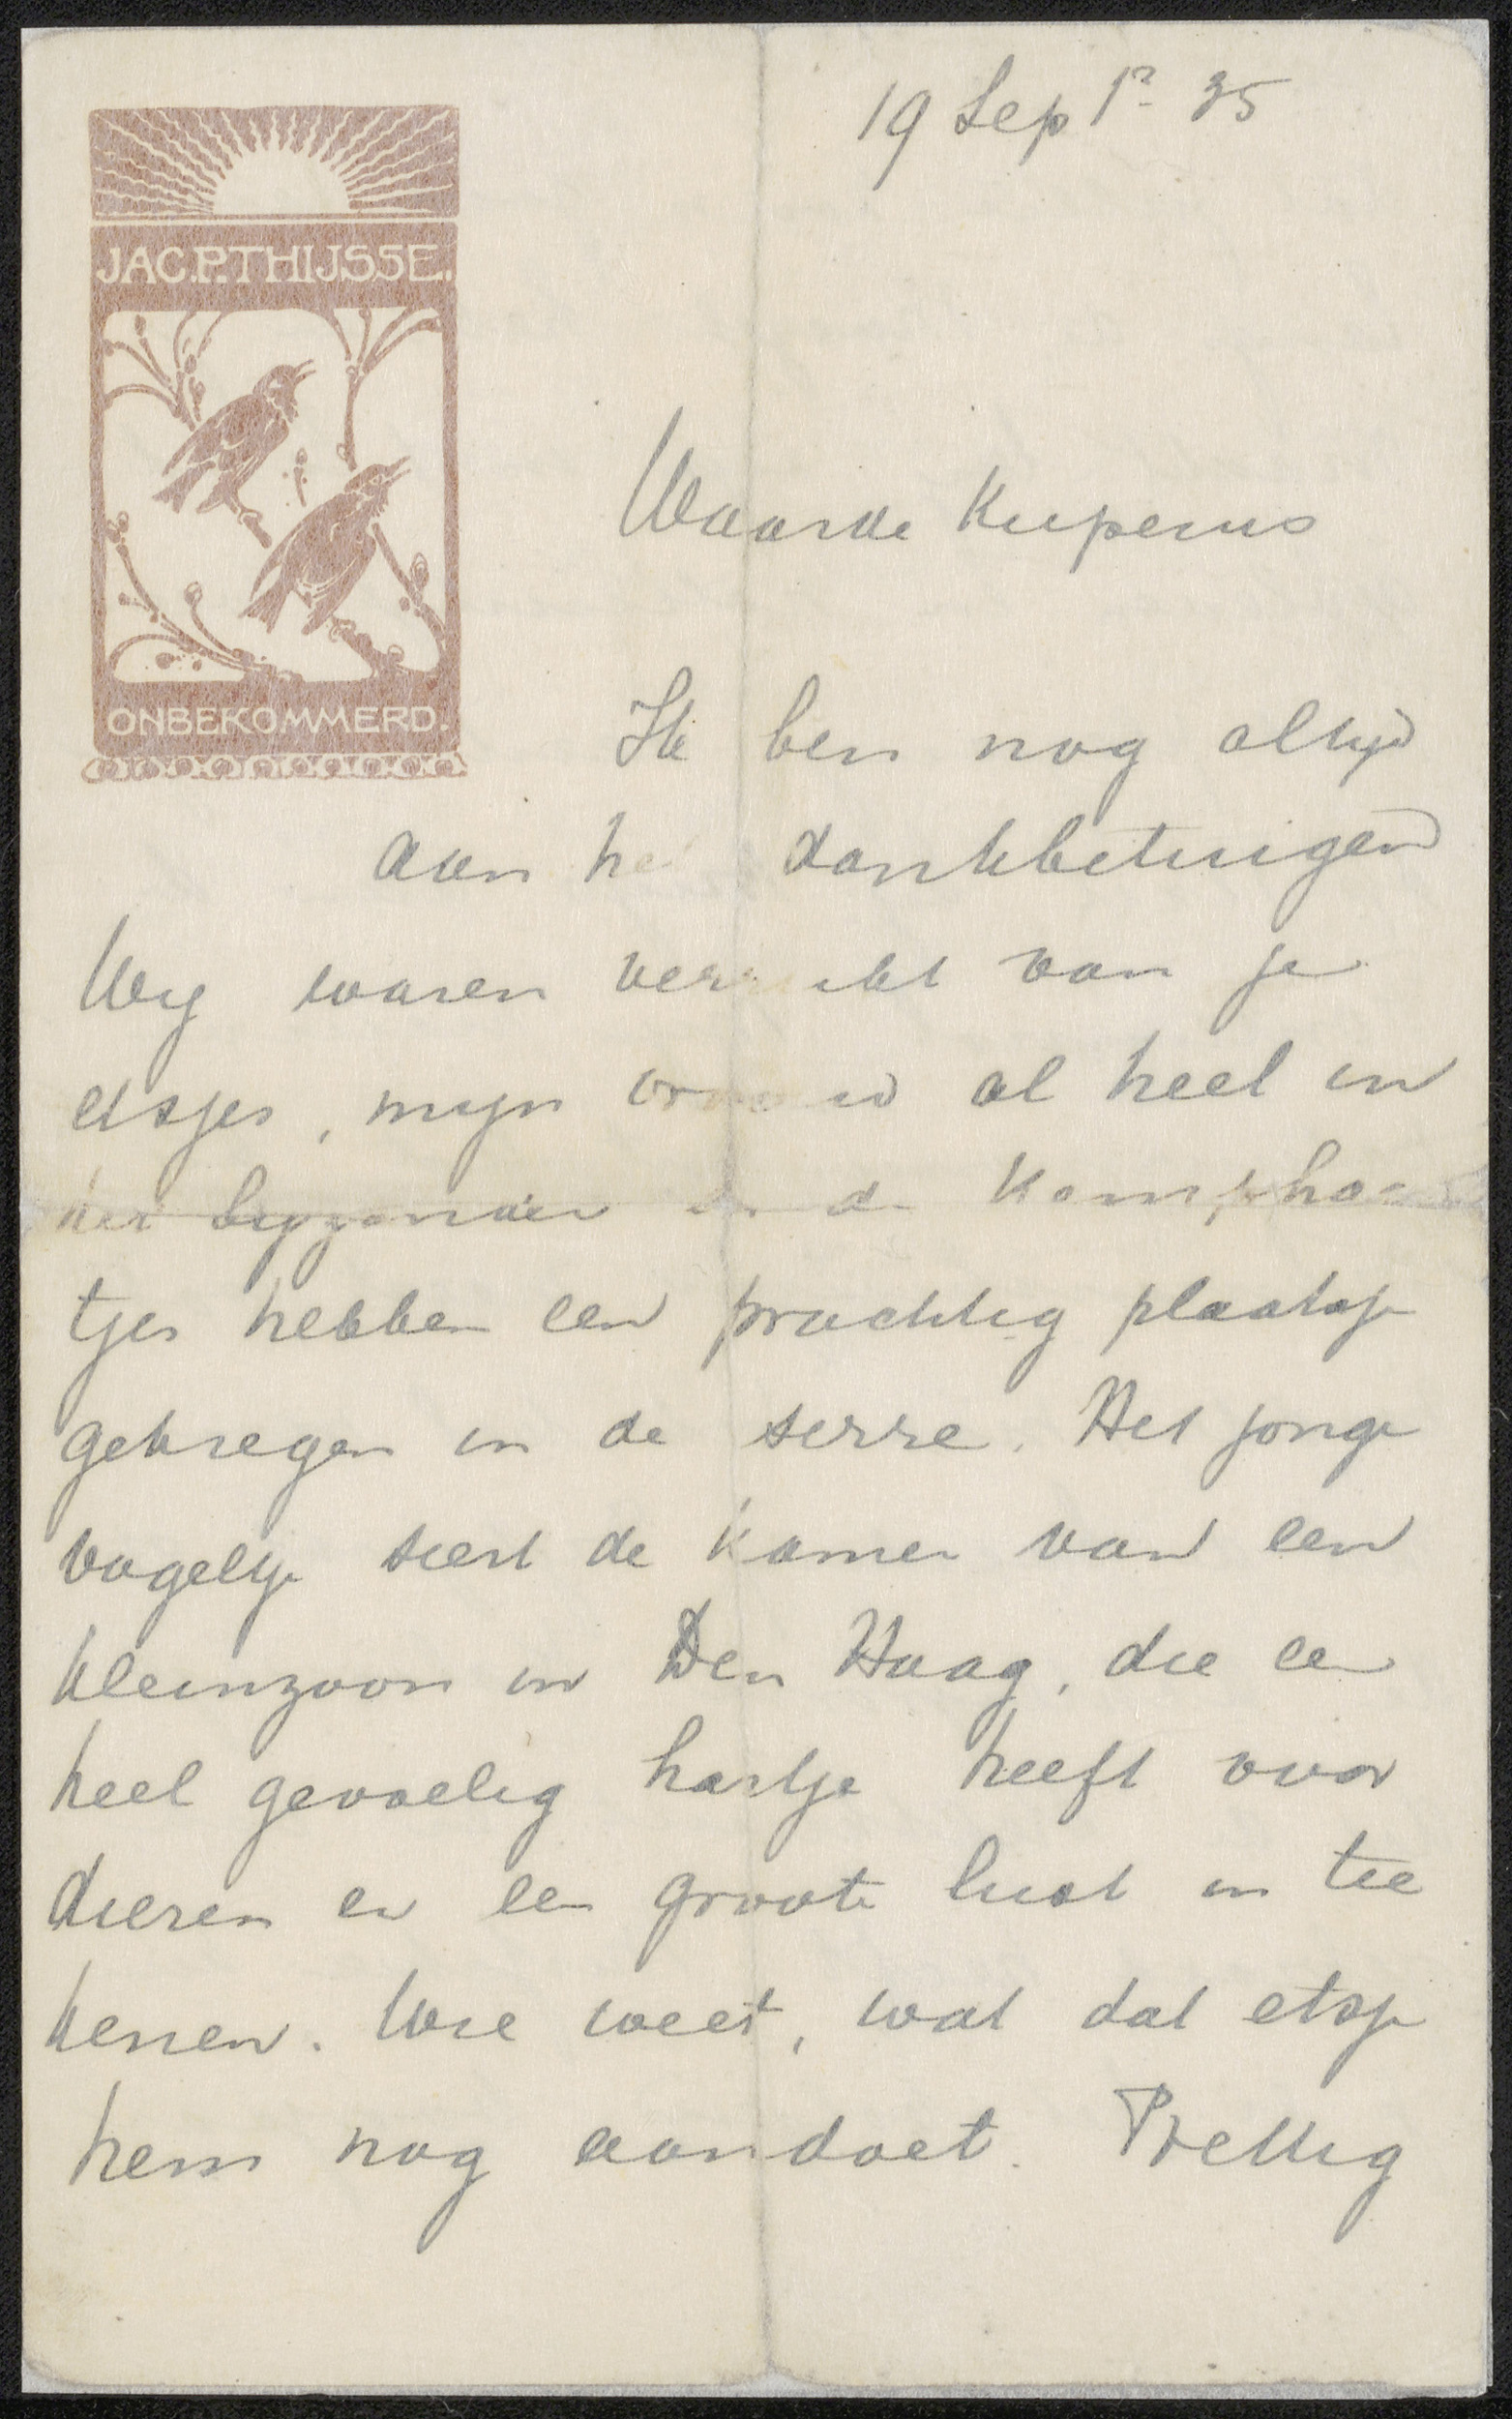 19 Sept 35
JAC.P.THIJSSE.
ONBEKOMMERD.
Waarde Kuperus
Ik ben nog altijd
aan het dankbetuigen
Wij waren verrukt van je
etsjes, mijn vrouw al heel in
het byzonder en de Kemphaa
tjes hebben een prachtig plaatsje
gekregen in de serre. Het jonge
vogeltje siert de kamer van een
kleinzoon in Den Haag, die een
heel gevoelig hartje heeft voor
dieren en een groote lust in tee
kenen. Wie weet, wat dat etsje
hem nog aandoet. Prettig